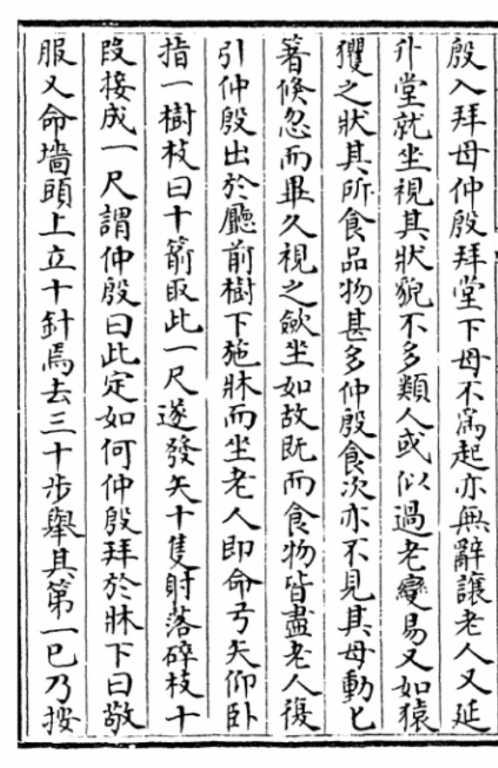 殷入拜母仲殷拜堂下母不為起亦無辭讓老人又延
升堂就坐視其狀貌不多類人或似過老變易又如猿
玃之狀其所食品物甚多仲殷食次亦不見其母動匕
箸倐忽而畢久視之斂坐如故既而食物皆盡老人復
引仲殷出於廳前樹下施牀而坐老人即命弓矢仰卧
指一樹枝曰十箭取此一尺遂發矢十隻射落碎枝十
段接成一尺謂仲殷曰此定如何仲殷拜於牀下曰敬
服又命墻頭上立十針焉去三十步舉其第一已乃按